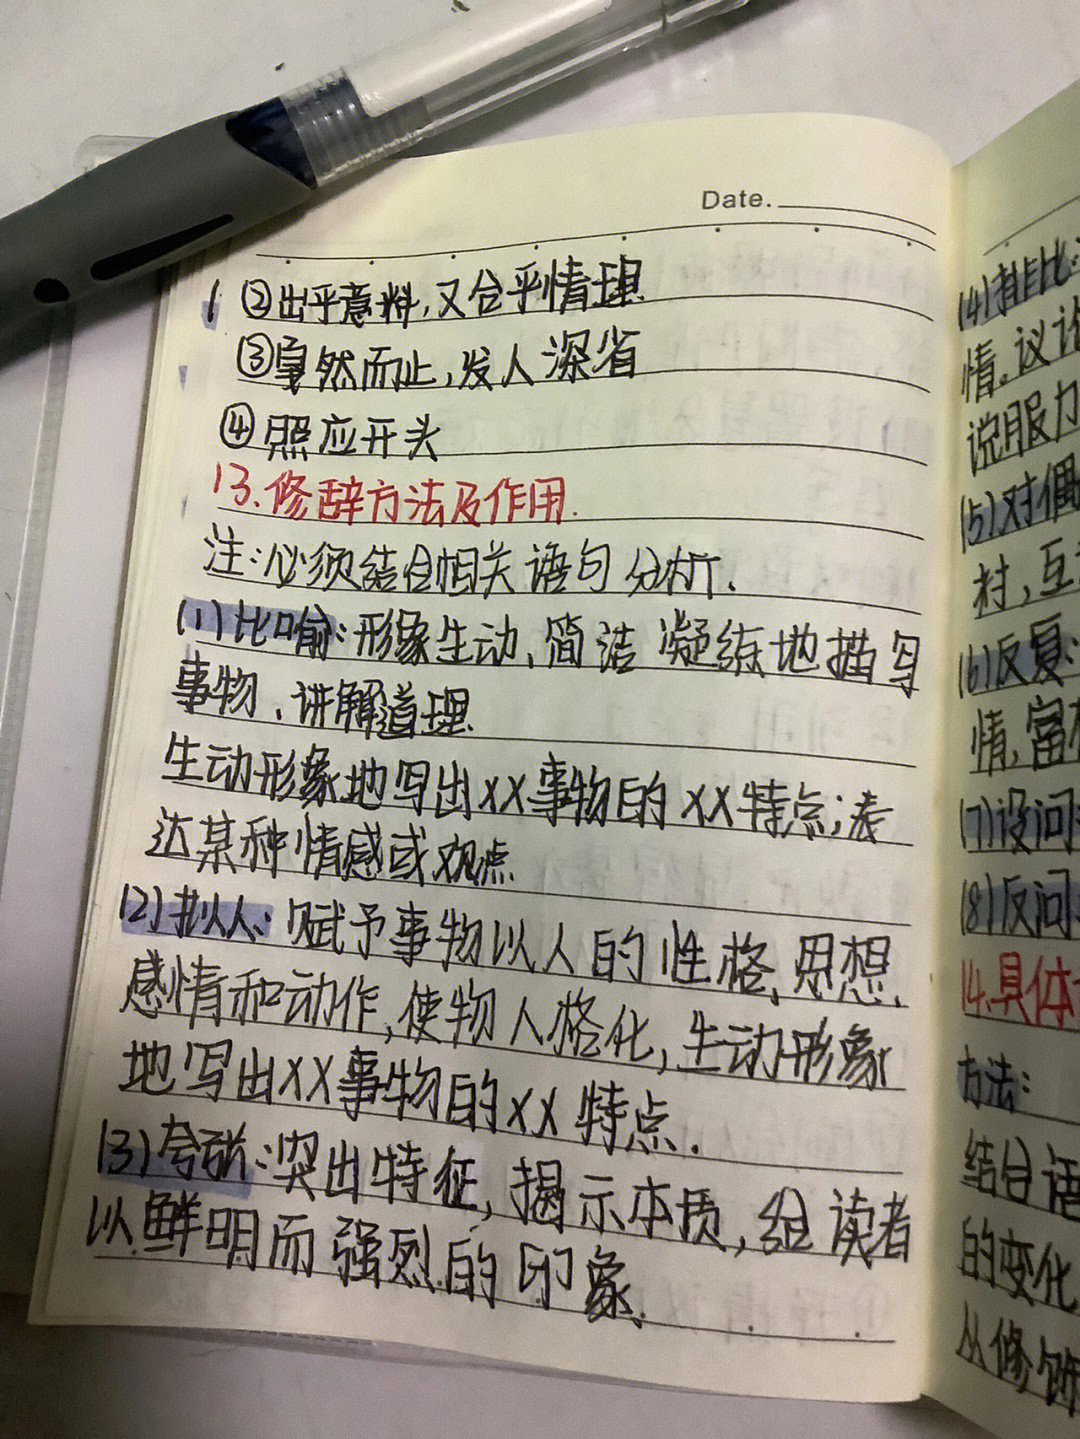 Date.
②出乎意料,又合乎情理.
③戛然而止,发人深省
④照应开头
13.修辞方法及作用.
注:必须结合相关语句分析.
(1)比喻:形象生动,简洁凝练地描写
事物、讲解道理.
生动形象地写出XX事物的XX特点;表
达某种情感或观点.
(2)拟人:赋予事物以人的性格、思想、
感情和动作,使物人格化,生动形象
地写出XX事物的XX特点.
(3)夸张:突出特征,揭示本质,给读者
以鲜明而强烈的印象.
(4)排比:
情。议论
说服力
(5)对偶
村,互
(6)反复:
情,富
(7)设问
(8)反问
14.具体
方法:
结合语
的变化
从修饰